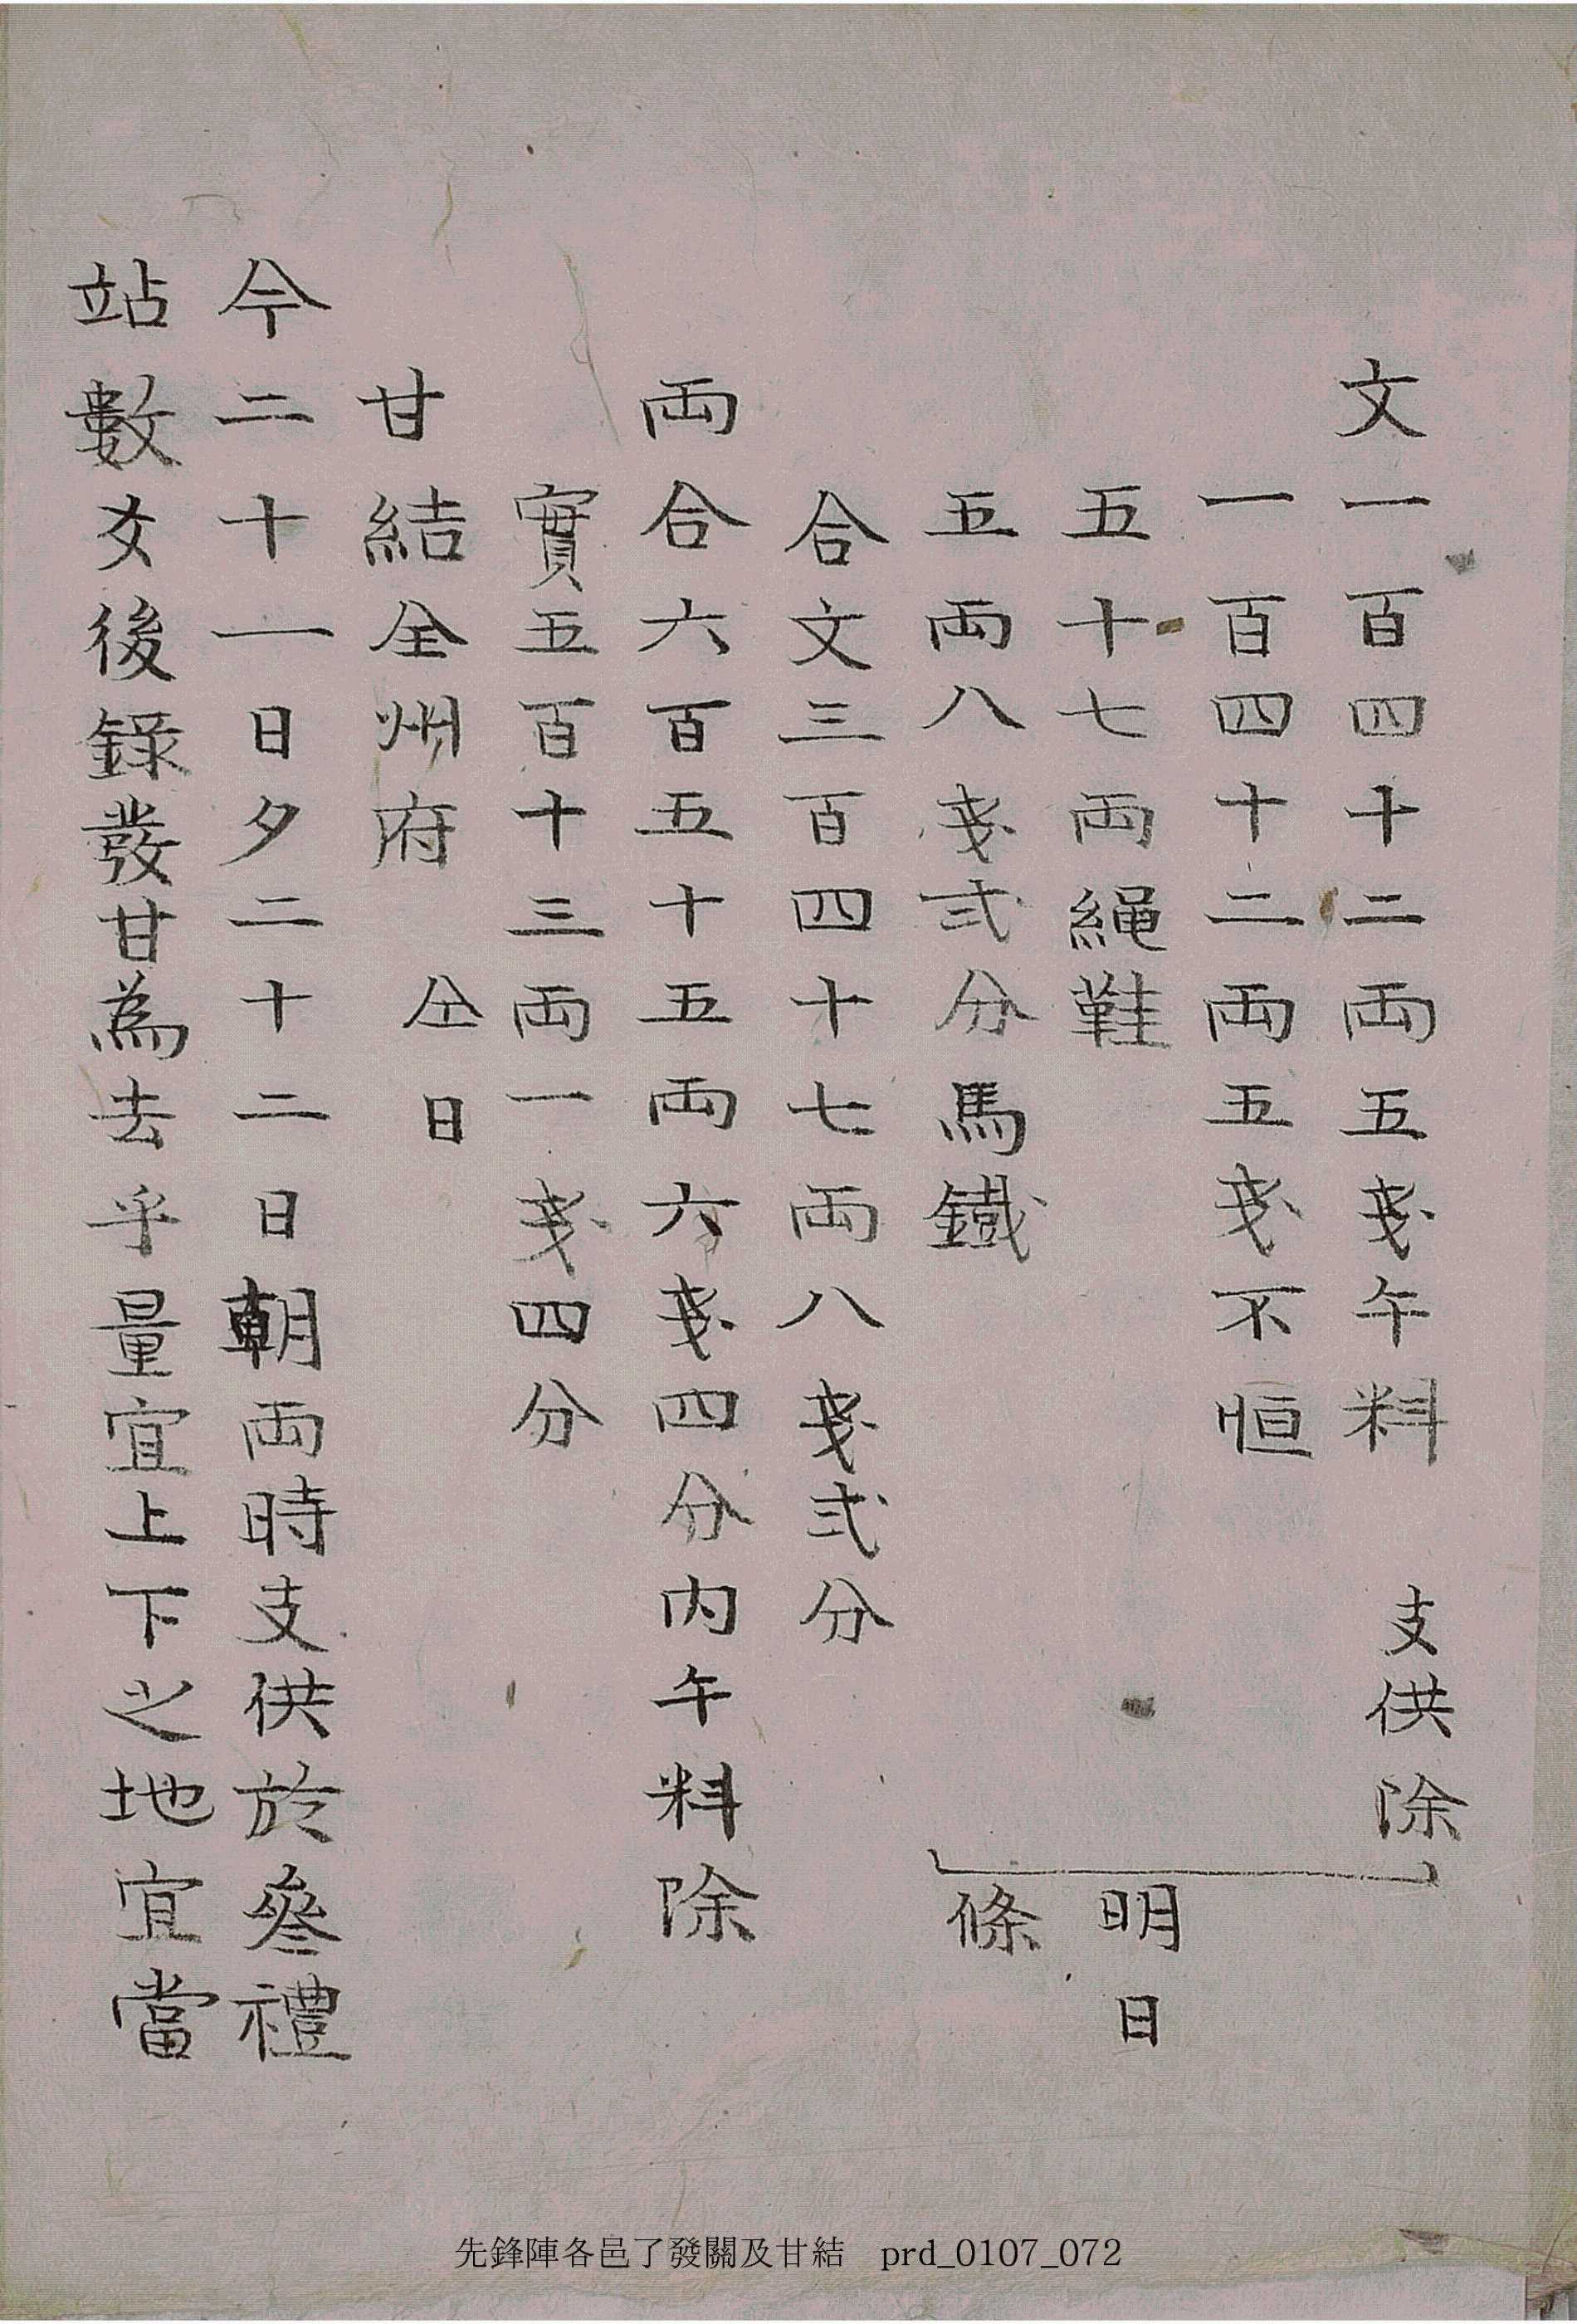 文一百四十二両五戔午料 支供除
一百四十二両五戔不恒
五十七両繩鞋
五両八戔弍分馬鐵
明日
條
合文三百四十七両八戔弍分
両合六百五十五両六戔四分内午料除
實五百十三両一戔四分
甘結全州府 仝日
今二十一日夕二十二日朝両時支供於叅禮
站數爻後錄發甘為去乎量宜上下之地宜當
先鋒陣各邑了發關及甘結 prd_0107_072